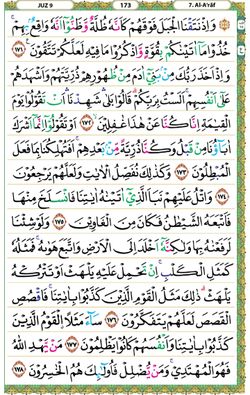 JUZ 9 173 7. Al-A'râf
وَإِذْ نَتَقْنَا الْجَبَلَ فَوْقَهُمْ كَأَنَّهُ ظُلَّةٌ وَظَنُّوا أَنَّهُ وَاقِعٌ بِهِمْ
خُذُوا مَا آتَيْنَاكُمْ بِقُوَّةٍ وَاذْكُرُوا مَا فِيهِ لَعَلَّكُمْ تَتَّقُونَ ١٧١
وَإِذْ أَخَذَ رَبُّكَ مِنْ بَنِي آدَمَ مِنْ ظُهُورِهِمْ ذُرِّيَّتَهُمْ وَأَشْهَدَهُمْ
عَلَى أَنْفُسِهِمْ أَلَسْتُ بِرَبِّكُمْ قَالُوا بَلَى شَهِدْنَا أَنْ تَقُولُوا يَوْمَ
الْقِيَامَةِ إِنَّا كُنَّا عَنْ هَذَا غَافِلِينَ ١٧٢ أَوْ تَقُولُوا إِنَّمَا أَشْرَكَ
آبَاؤُنَا مِنْ قَبْلُ وَكُنَّا ذُرِّيَّةً مِنْ بَعْدِهِمْ أَفَتُهْلِكُنَا بِمَا فَعَلَ
الْمُبْطِلُونَ ١٧٣ وَكَذَلِكَ نُفَصِّلُ الْآيَاتِ وَلَعَلَّهُمْ يَرْجِعُونَ
١٧٤ وَاتْلُ عَلَيْهِمْ نَبَأَ الَّذِي آتَيْنَاهُ آيَاتِنَا فَانْسَلَخَ مِنْهَا
فَأَتْبَعَهُ الشَّيْطَانُ فَكَانَ مِنَ الْغَاوِينَ ١٧٥ وَلَوْ شِئْنَا
لَرَفَعْنَاهُ بِهَا وَلَكِنَّهُ أَخْلَدَ إِلَى الْأَرْضِ وَاتَّبَعَ هَوَاهُ فَمَثَلُهُ
كَمَثَلِ الْكَلْبِ إِنْ تَحْمِلْ عَلَيْهِ يَلْهَثْ أَوْ تَتْرُكْهُ
يَلْهَثْ ذَلِكَ مَثَلُ الْقَوْمِ الَّذِينَ كَذَّبُوا بِآيَاتِنَا فَاقْصُصِ
الْقَصَصَ لَعَلَّهُمْ يَتَفَكَّرُونَ ١٧٦ سَاءَ مَثَلًا الْقَوْمُ الَّذِينَ
كَذَّبُوا بِآيَاتِنَا وَأَنْفُسَهُمْ كَانُوا يَظْلِمُونَ ١٧٧ مَنْ يَهْدِ اللَّهُ
فَهُوَ الْمُهْتَدِي وَمَنْ يُضْلِلْ فَأُولَئِكَ هُمُ الْخَاسِرُونَ ١٧٨